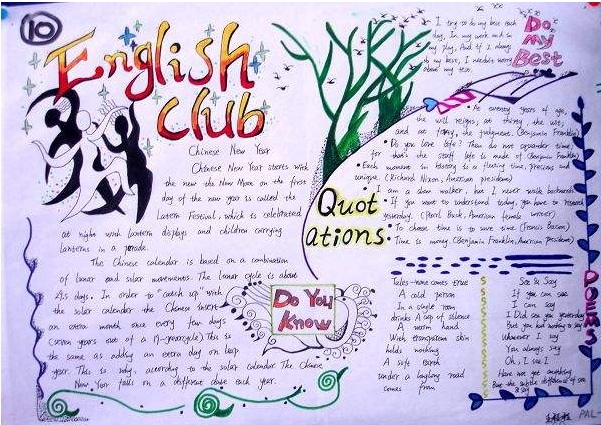 10
English
Club
Chinese New Year
Chinese New Year starts with
the new the New Moon on the first
day of the new year is called the
Latern Festival, which is celebrated
at night with lantern displays and children carrying
lanterns in a parade.
The Chinese calendar is based on a combination
of lunar and solar movements. The lunar cycle is about
29.5 days. In order to "catch up" with
the solar calendar the Chinese insert
an extra month once every few days
(seven years out of a 19-yearcycle) This is
the same as adding an extra day on leap
year. This is why, according to the solar calendar The Chinese
New Year falls on a different date each year.
Do You
Know
Do
My
Best
I try to do my best each
day, In my work and in
my play, And if I always
do my best, I needn't worry
about my test.
Quot
ations:
At twenty years of age,
the will reigns; at thirty, the wit;
and at forty, the judgment. (Benjamin Franklin)
Do you love life? Then do not squander time,
for that's the stuff life is made of (Benjamin Franklin)
Each moment in history is a fleeting time, precious and
unique (Richard Nixon, American president)
I am a slow walker, but I never walk backwards
If you want to understand today, you have to research
yesterday. (Pearl Buck, American female writer)
To choose time is to save time (Francis Bacon)
Time is money (Benjamin Franklin, American president)
Tales-none comes true
A cold person
In a single room
drinks A cup of silence
A warm hand
With transparent skin
holds nothing
A soft torch
under a longlong road
comes from
See & Say
If you can see
I can say
I Did see you yesterday
But you had nothing to say
Whatever I say
You always say
Oh, I see!
Have not got anything
But the subtle difference of see
& say
POEMS
PAL-